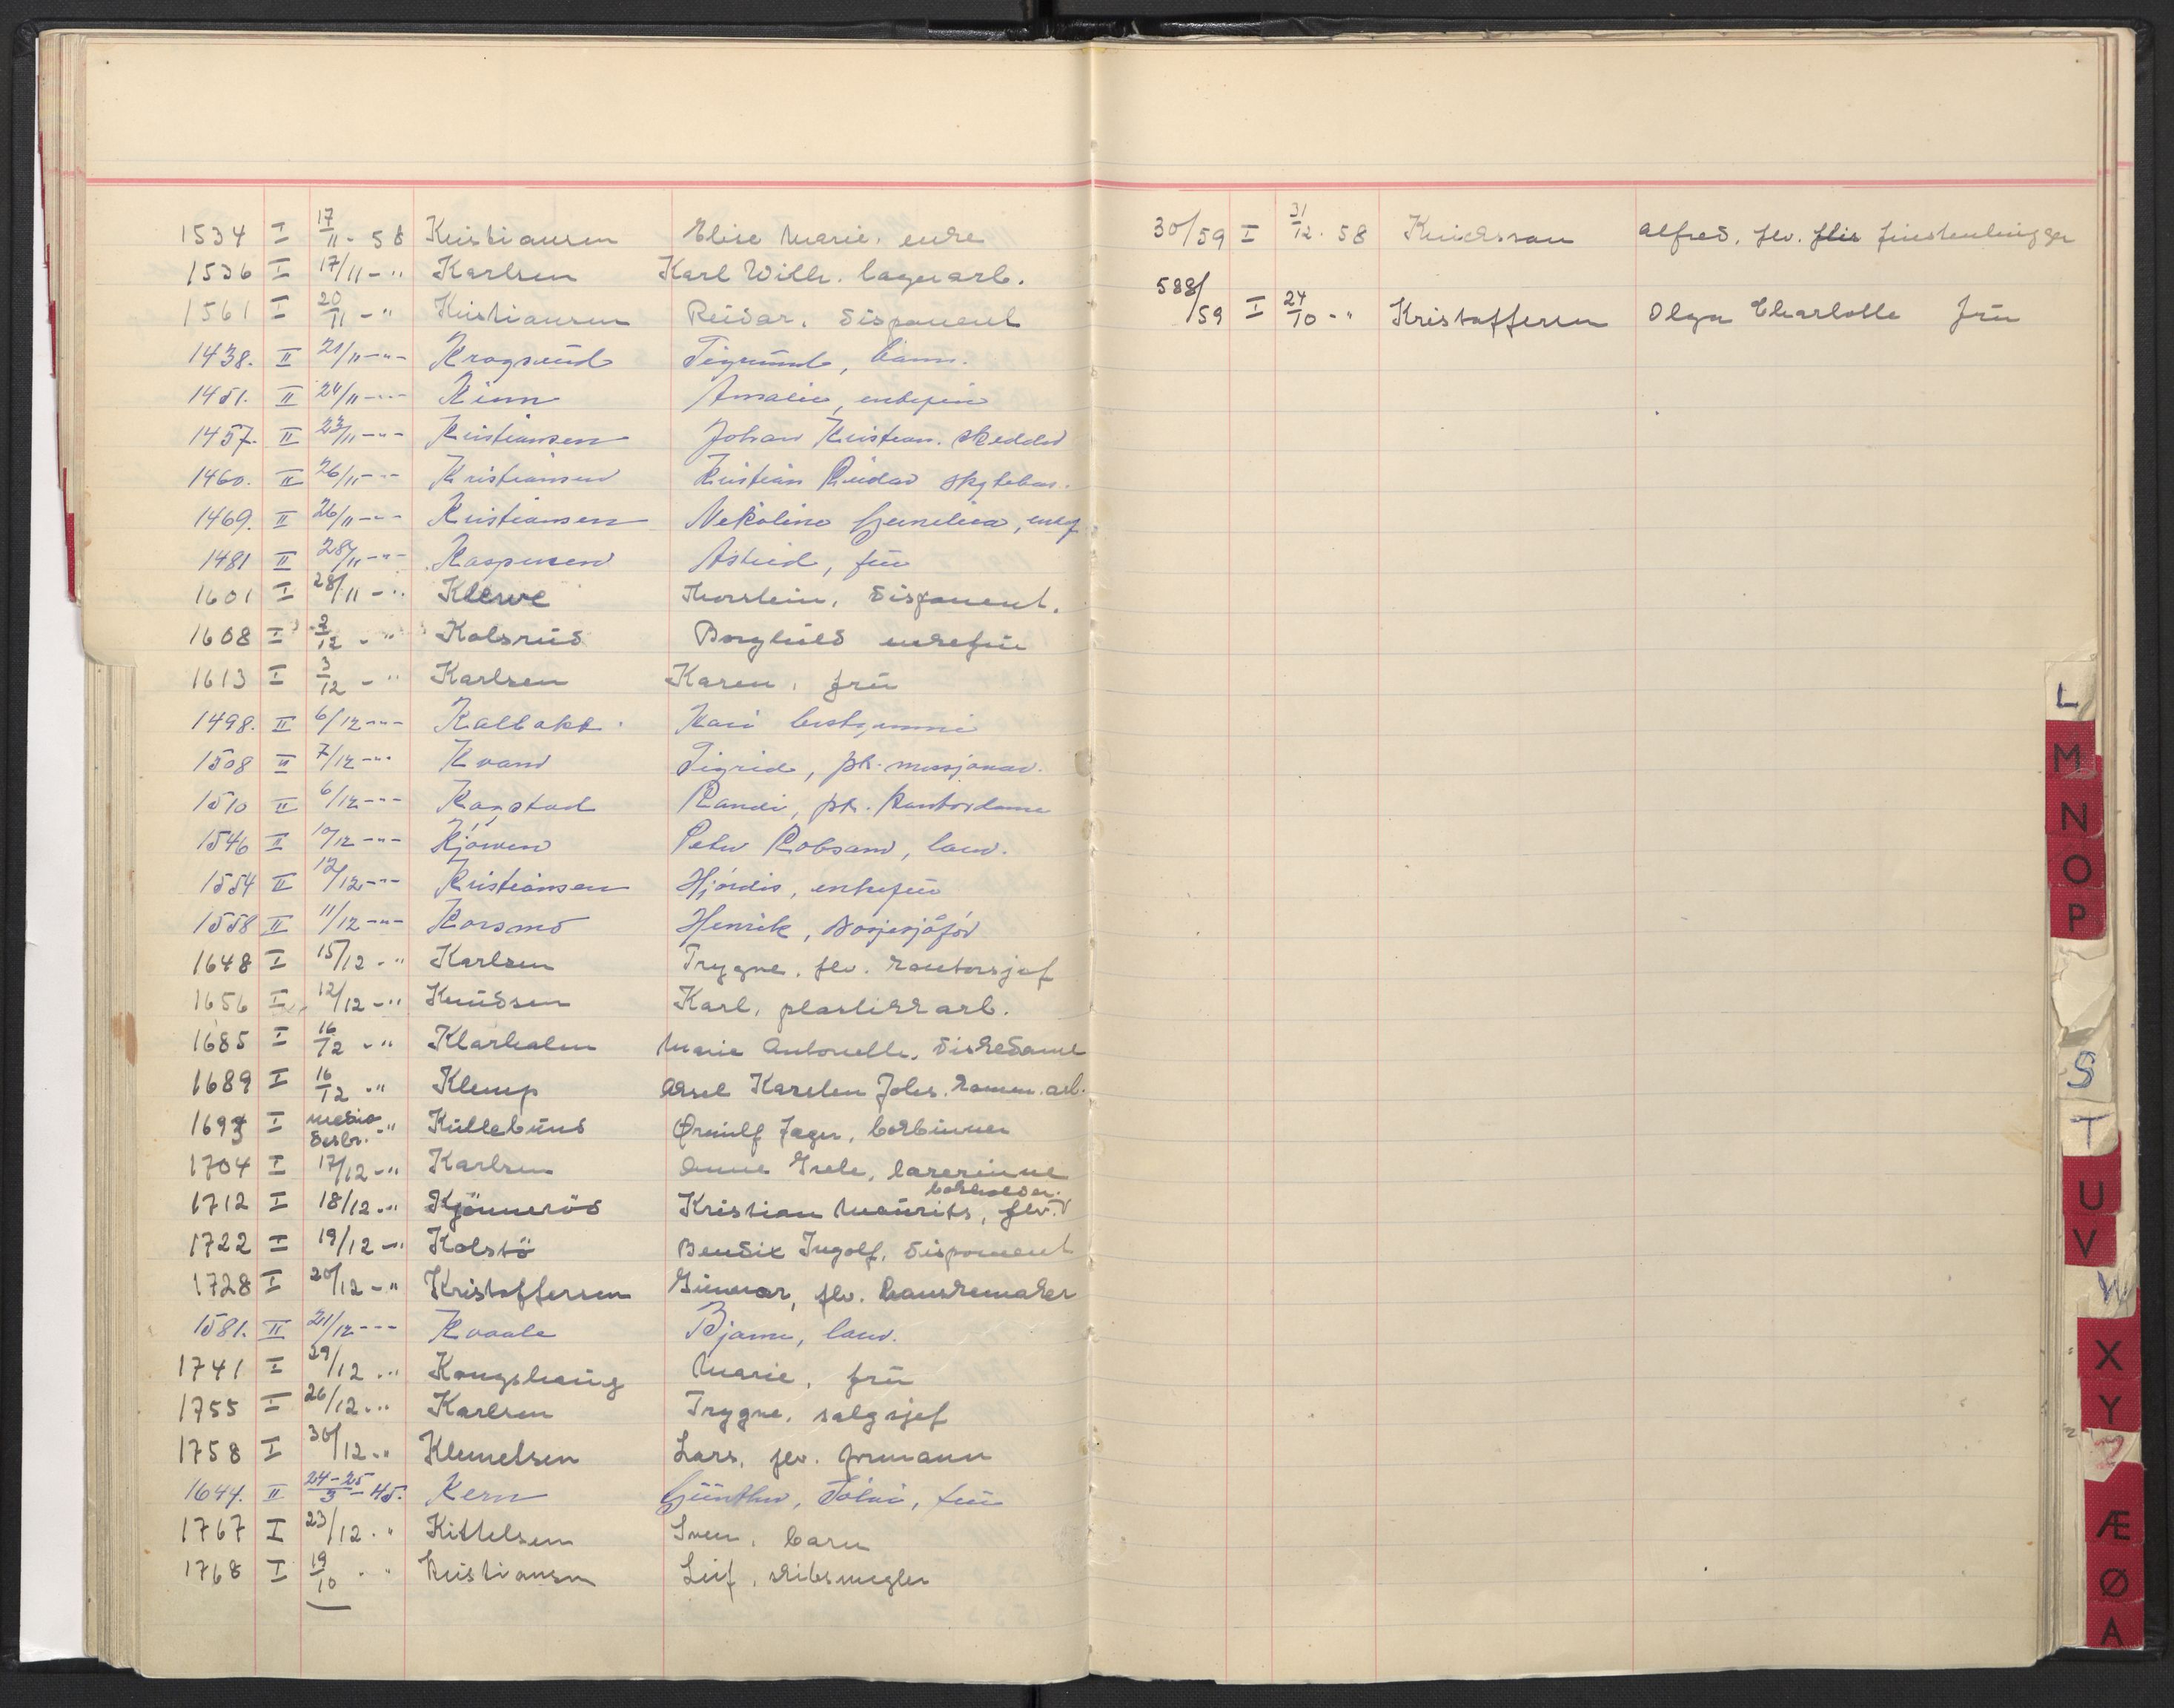 1534 I 17/11 - 58 Kristiansen Elise Marie, enke
1536 I 17/11 - " Karlsen Karl Wilh. lagerarb.
1561 I 20/11 - " Kristiansen Reidar, disponent
1438. II 21/11 - " - Krogsrud Sigmund, barn.
1451. II 24/11 - " - Kinn Amalie, enkefru
1457. II 23/11 - " - Kristiansen Johan Kristian.
1460. II 26/11 - " - Kristiansen Kristian Reidar
1469. II 26/11 - " - Kristiansen Nekoline
1481 II 28/11 - " - Kaspersen Astrid, fru
1601 I 28/11 - " Kleve Thorstein, disponent.
1608 I 2/12 - " Kolsrud Borghild enkefru
1613 I 3/12 - " Karlsen Karen, fru
1498. II 6/12 - " - Kalbakk Kari
1508 II 7/12 - " - Kvam Sigrid, pr.
1510 II 6/12 - " - Kogstad Randi, pr. kontordame
1546 II 10/12 - " - Peter Robsam, landv.
1554 II 12/12 - " - Kristiansen Hjørdis, enkefru
1558 II 11/12 - " - Korsmo Henrik,
1648 I 15/12 - " Karlsen Trygve, flv. kontorsjef
1656 I 12/12 - " Knudsen Karl, plastikkarb.
1685 I 16/12 - " Klarholm Marie Antonette, diskedame
1689 I 16/12 - " Klemp Aksel Karsten Johs. komm. arb.
1693 I medio desbr. - " Kullebund Ørnulf Jager, bokbinner
1704 I 17/12 - " Karlsen Anne Grete, lærerinne
1712 I 18/12 - " Kjønnerød Kristian Maurits, flv. bokholder.
1722 I 19/12 - " Kolstø Bendix Ingolf, disponent
1728 I 20/12 - " Kristoffersen Gunnar, flv. hanskemaker
1581. II 21/12 - " - Kvaale Bjarne, landv.
1741 I 29/12 - " Kongshaug Marie, fru
1755 I 26/12 - " Karlsen Trygve, salgsjef
1758 I 30/12 - " Klemetsen Lars, flv. formann
1644. II 24-25/3 - 45. Kern Günther, fru
1767 I 23/12 - " Kittelsen Sven, barn
1768 I 19/10 - " Kristiansen Leif, skibsmegler
30/59 I 31/12 - 58 Alfred, flv.
588/59 I 24/10 - " Kristoffersen Olga Charlotte Fru
L
M
N
O
P
S
T
U
V
W
X
Y
Z
Æ
Ø
A